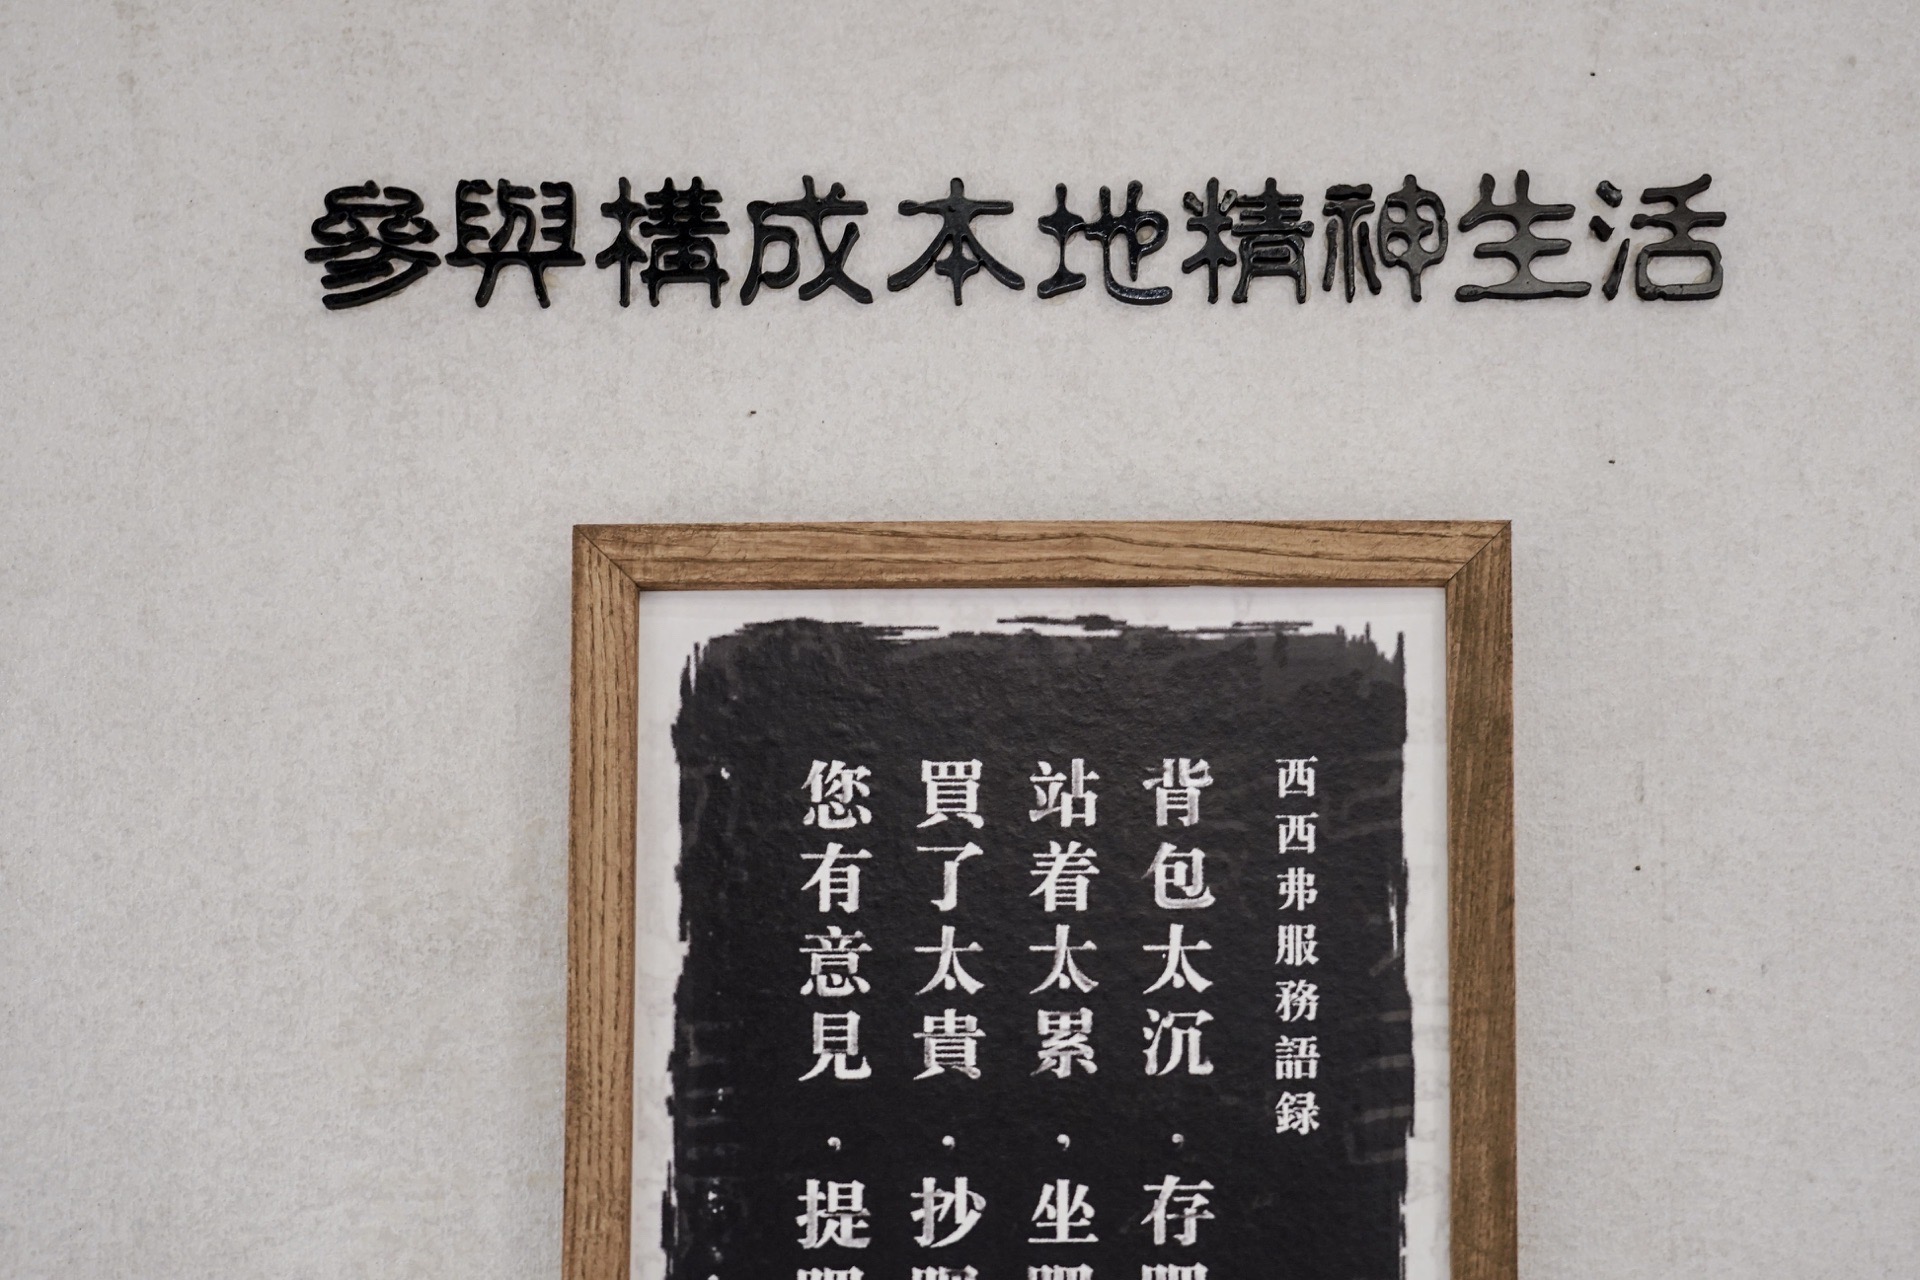 參與構成本地精神生活
西西弗服務語録
背包太沉，存
站着太累，坐
買了太貴，抄
您有意見，提